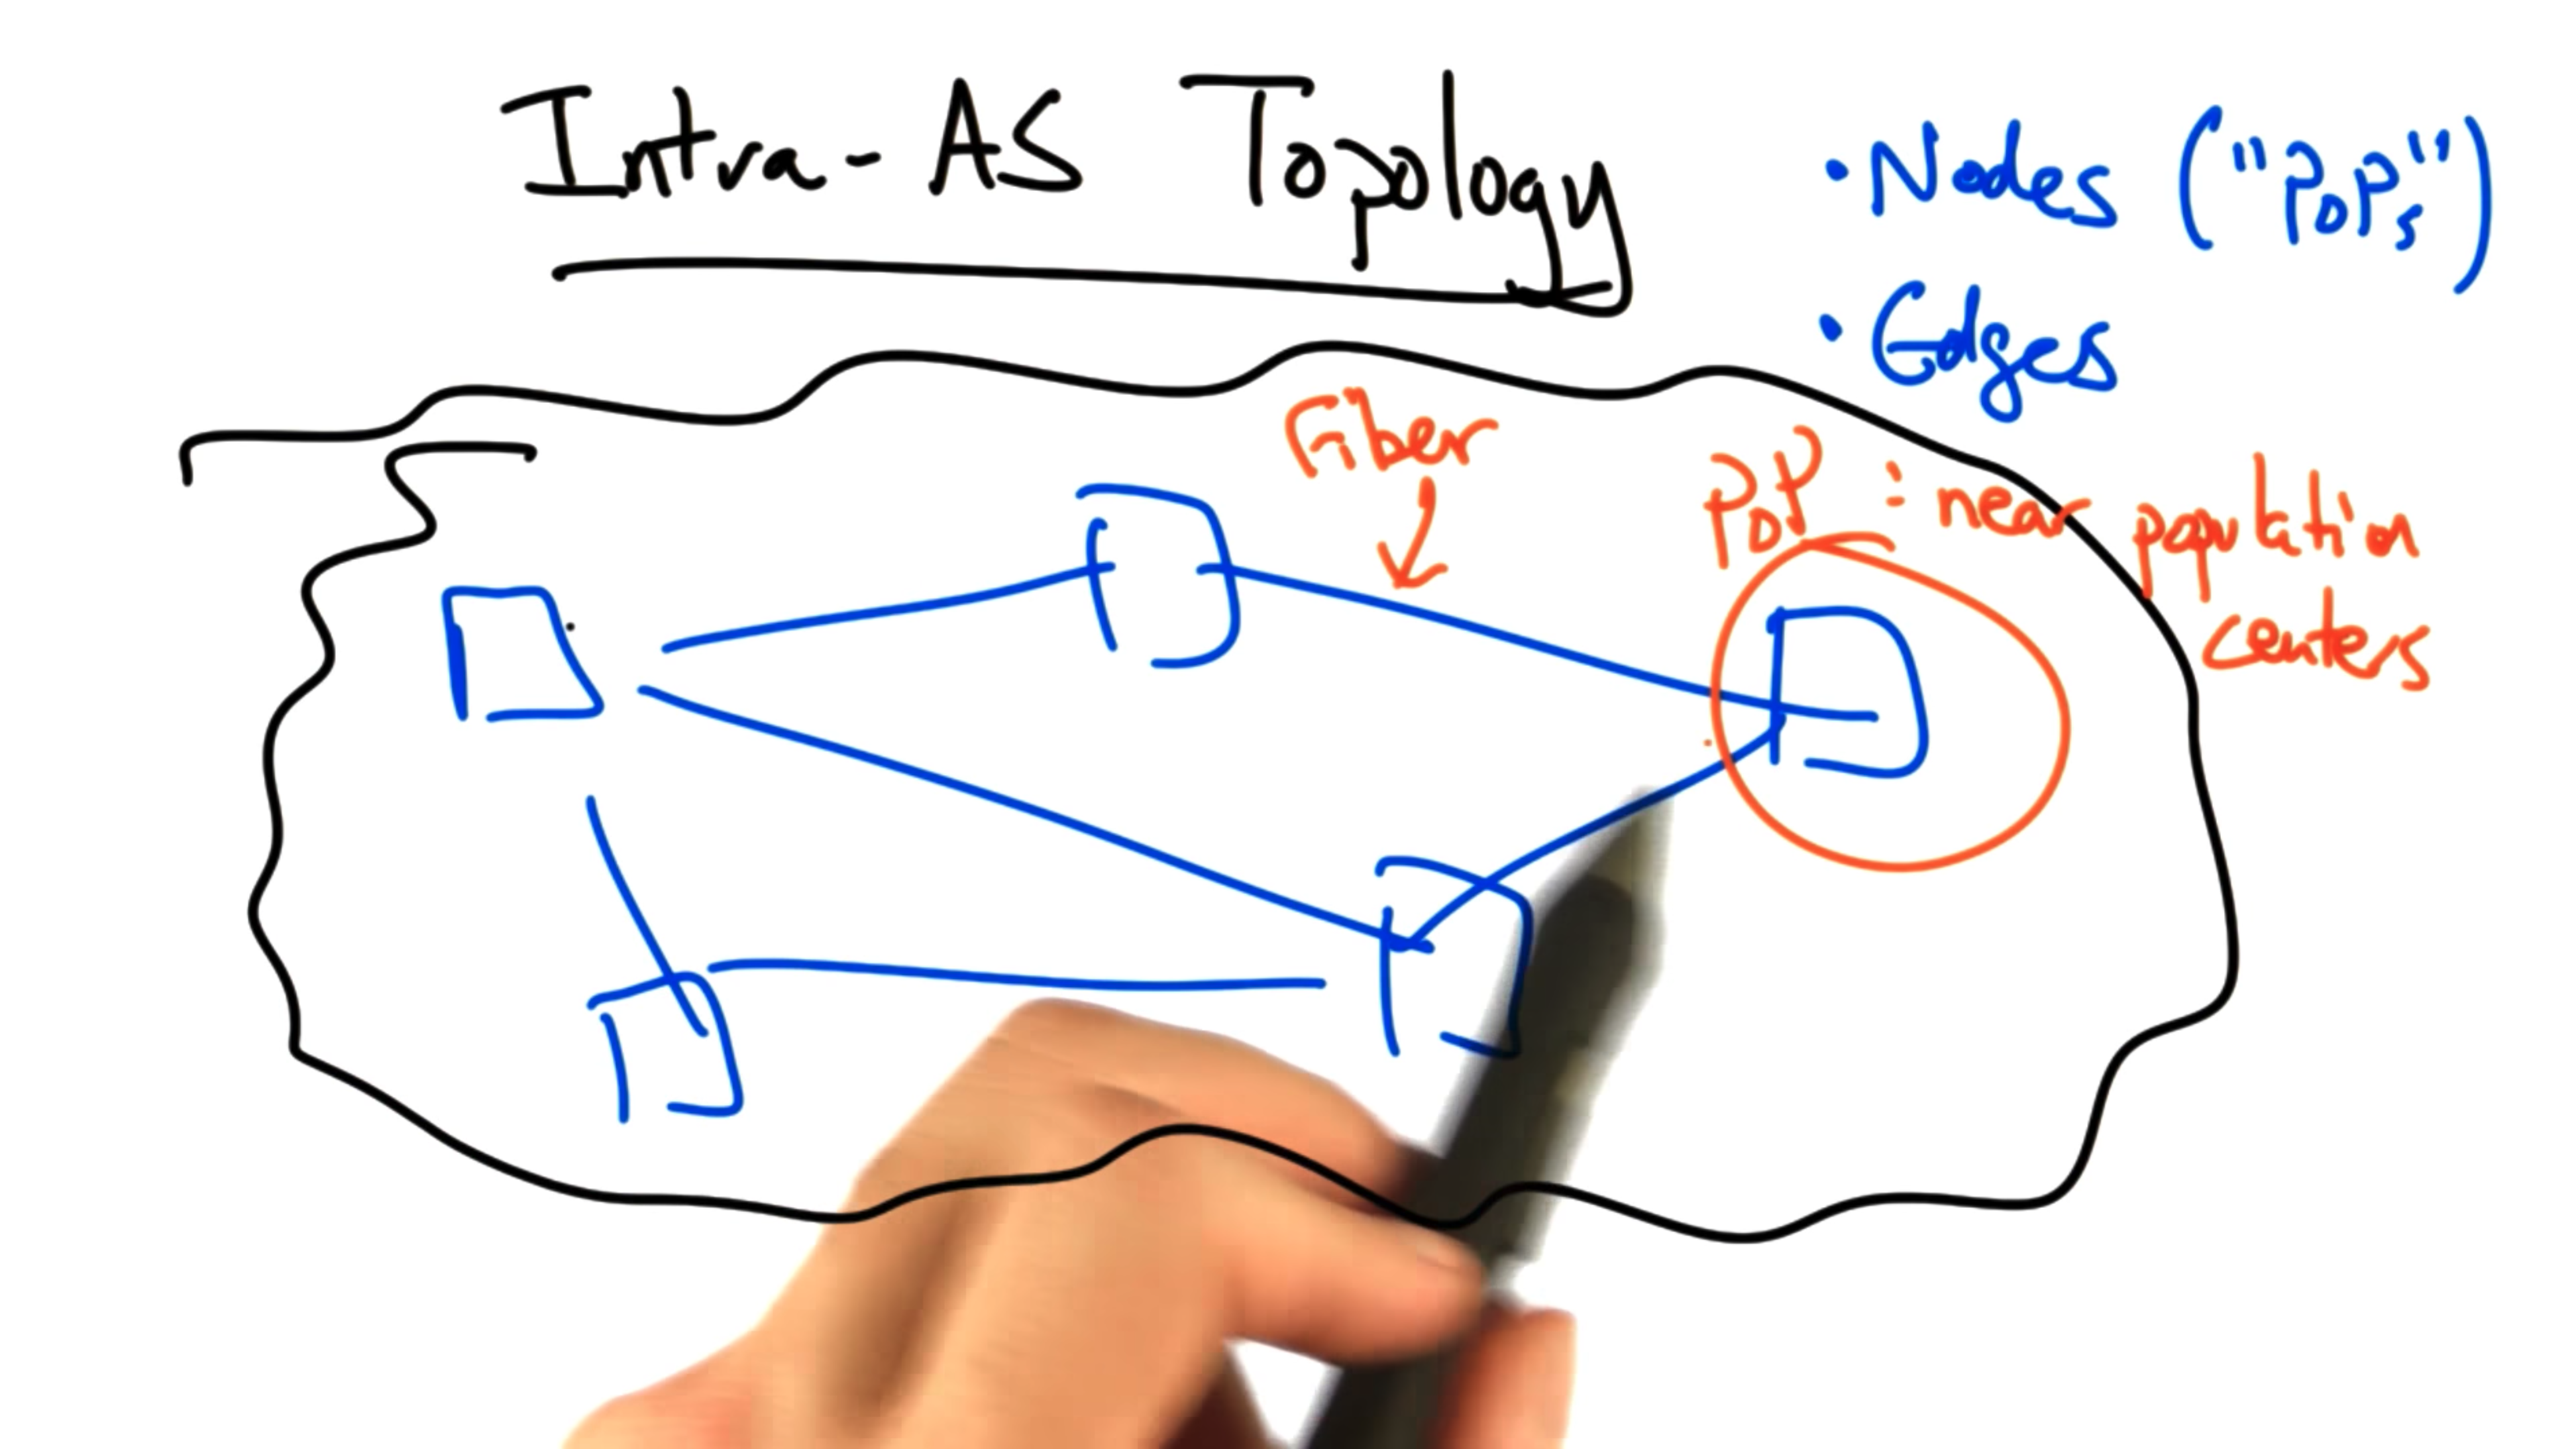 Intra-AS Topology
• Nodes ("PoPs")
• Edges
Fiber
PoP : near population
centers